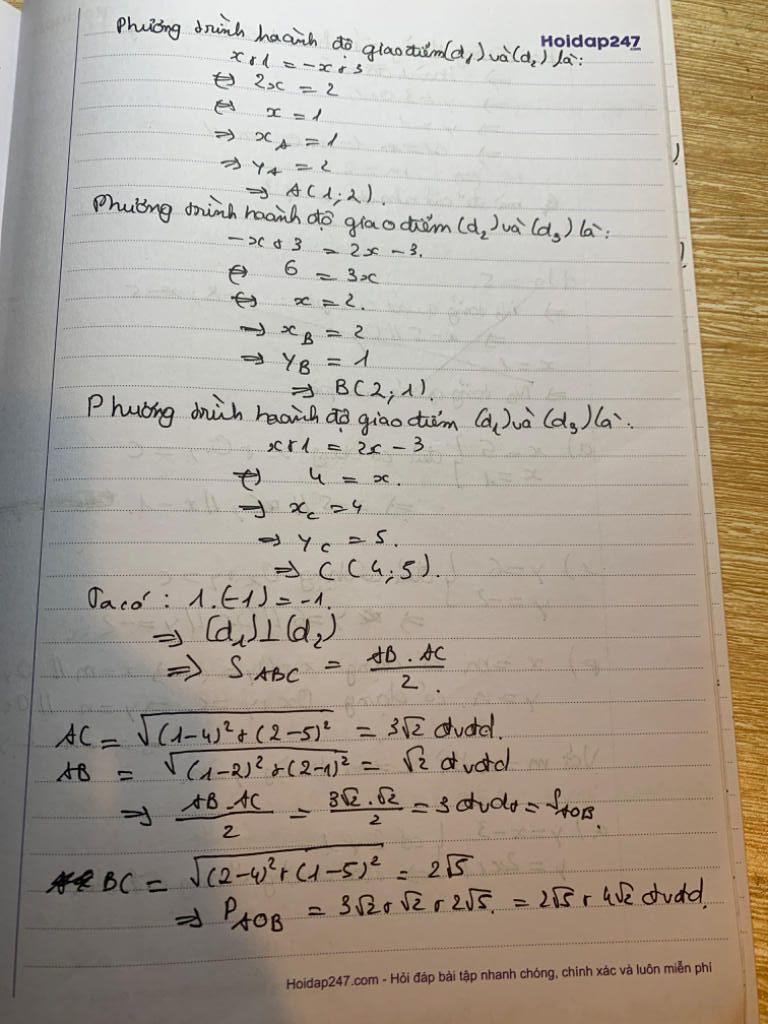 Phương trình hoành độ giao điểm (d₁) và (d₂) là:
Hoidap247
x+1 = -x+3
⇔ 2x = 2
⇔ x = 1
⇒ x_A = 1
⇒ y_A = 2
⇒ A(1;2).
Phương trình hoành độ giao điểm (d₂) và (d₃) là:
-x+3 = 2x-3.
⇔ 6 = 3x
⇔ x = 2.
⇒ x_B = 2
⇒ y_B = 1
⇒ B(2;1).
Phương trình hoành độ giao điểm (d₁) và (d₃) là:
x+1 = 2x-3
⇔ 4 = x.
⇒ x_C = 4
⇒ y_C = 5.
⇒ C(4;5).
Ta có: 1.(-1) = -1.
⇒ (d₁)⊥(d₂)
⇒ S_ABC = AB.AC/2.
AC = √((1-4)²+(2-5)²) = 3√2 đvđd.
AB = √((1-2)²+(2-1)²) = √2 đvđd
⇒ AB.AC/2 = 3√2.√2/2 = 3 đvdt = S_AOB.
BC = √((2-4)²+(1-5)²) = 2√5
⇒ P_AOB = 3√2+√2+2√5. = 2√5+4√2 đvđd.
Hoidap247.com - Hỏi đáp bài tập nhanh chóng, chính xác và luôn miễn phí